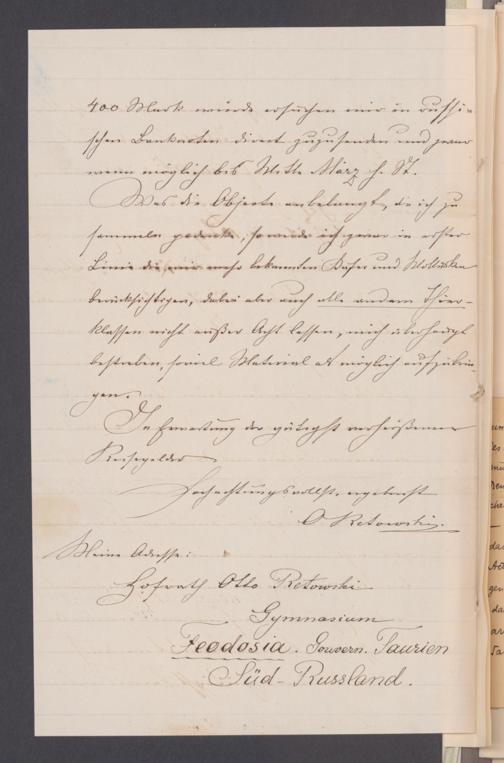 400 Mark würde ersuchen mir in russi-
schen Banknoten direct zuzusenden und zwar
wenn möglich bis Mitte März h. St.
Was die Objecte anbelangt, die ich zu
sammeln gedenke, so werde ich zwar in erster
Linie die mir mehr bekannten Käfer und Mollusken
berücksichtigen, dabei aber auch alle andern Thier-
klassen nicht außer Acht lassen, mich überhaupt
bestreben, soviel Material als möglich aufzubrin-
gen.
In Erwartung der gütigst verheißenen
Reisegelder
Hochachtungsvollst ergebenst
O Retowski.
Meine Adresse:
Hofrath Otto Retowski
Gymnasium
Feodosia. Gouvern. Taurien
Süd-Russland.